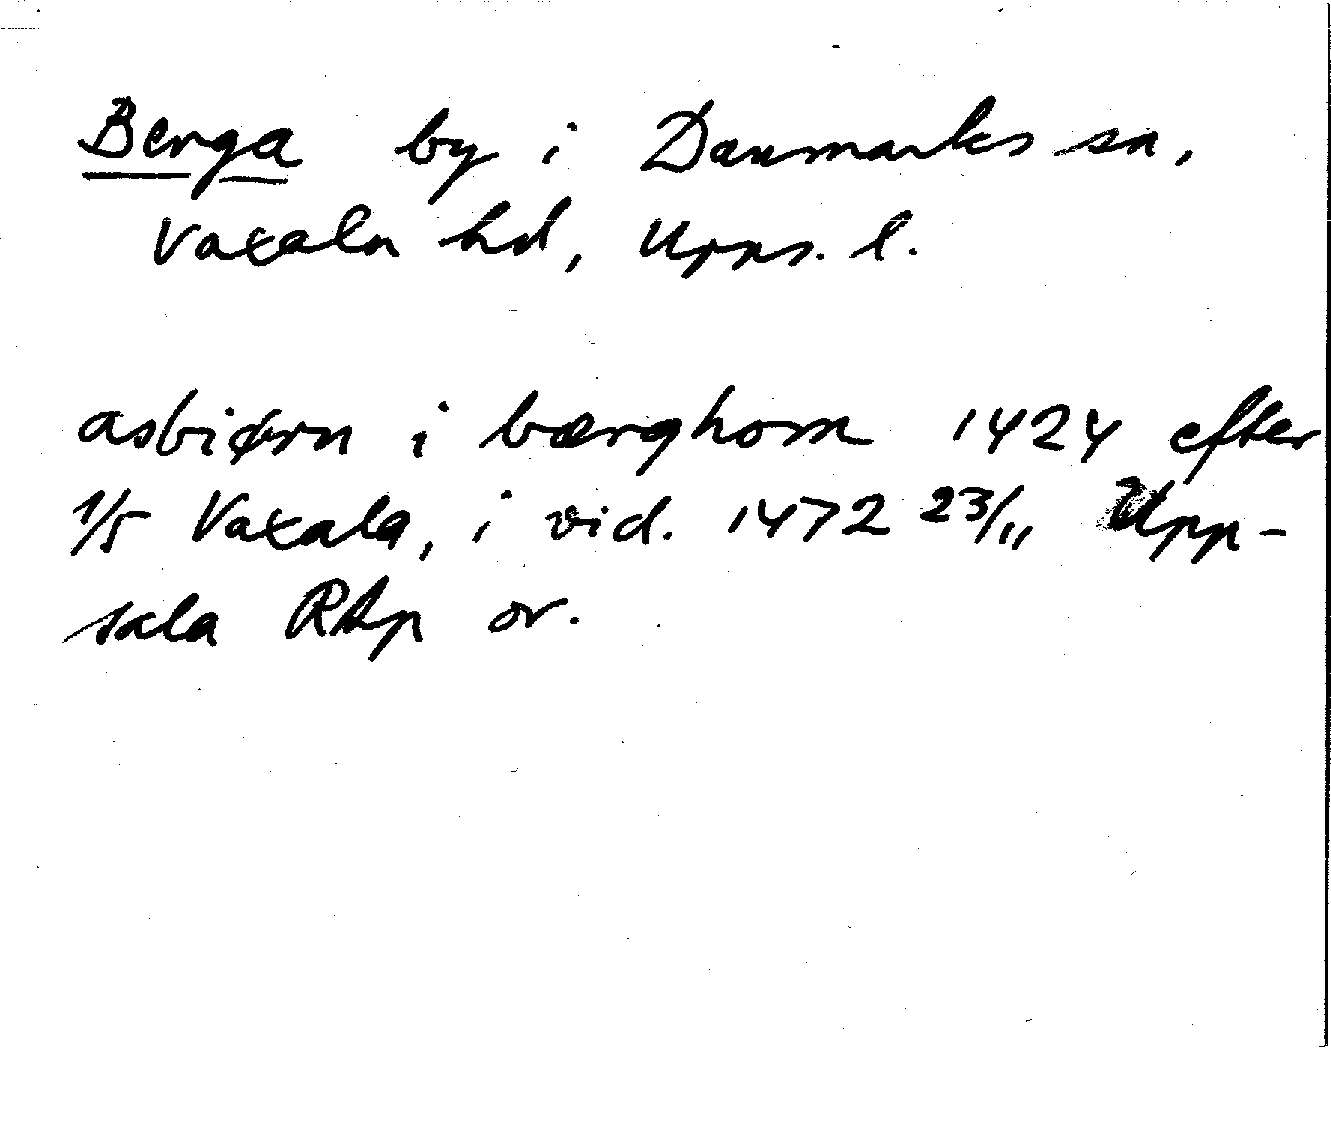 Berga by i Danmarks sn,
Vaxala hd, Upps. l.
asbiørn i bærghom 1424 efter
1/5 Vaxala, i vid. 1472 23/11 Upp-
sala RAp or.